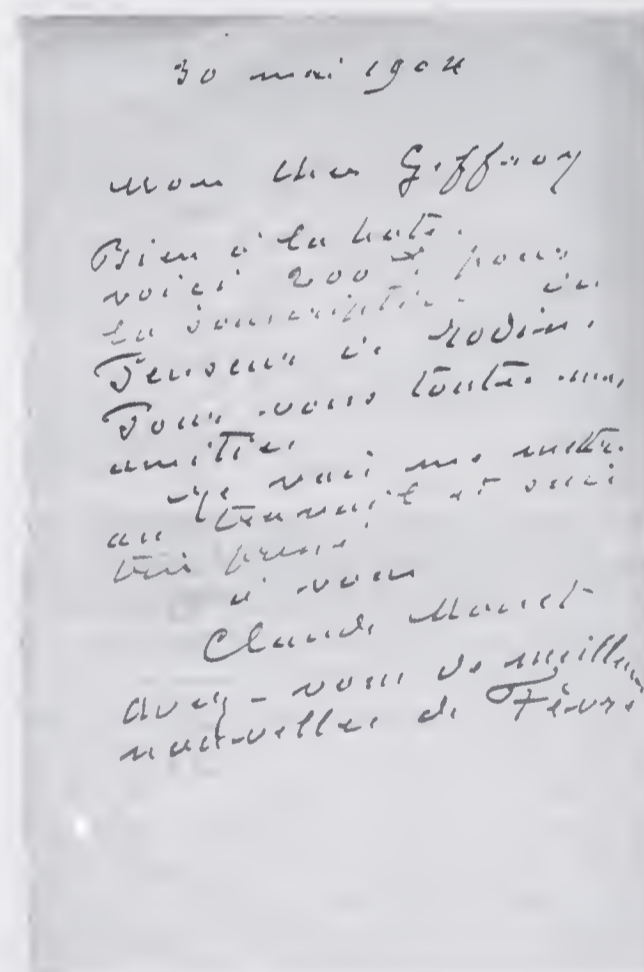 30 mai 1904
Mon cher Geffroy
Bien à la hâte.
voici 200 f pour
la souscription du
Penseur de Rodin.
Pour vous toutes mes
amitiés
Je vais me mettre
au travail et suis
très pressé.
à vous
Claude Monet
avez-vous de meilleures
nouvelles de Fèvre